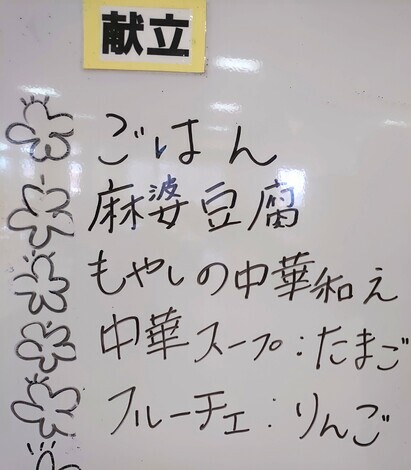 献立
ごはん
麻婆豆腐
もやしの中華和え
中華スープ:たまご
フルーチェ:りんご